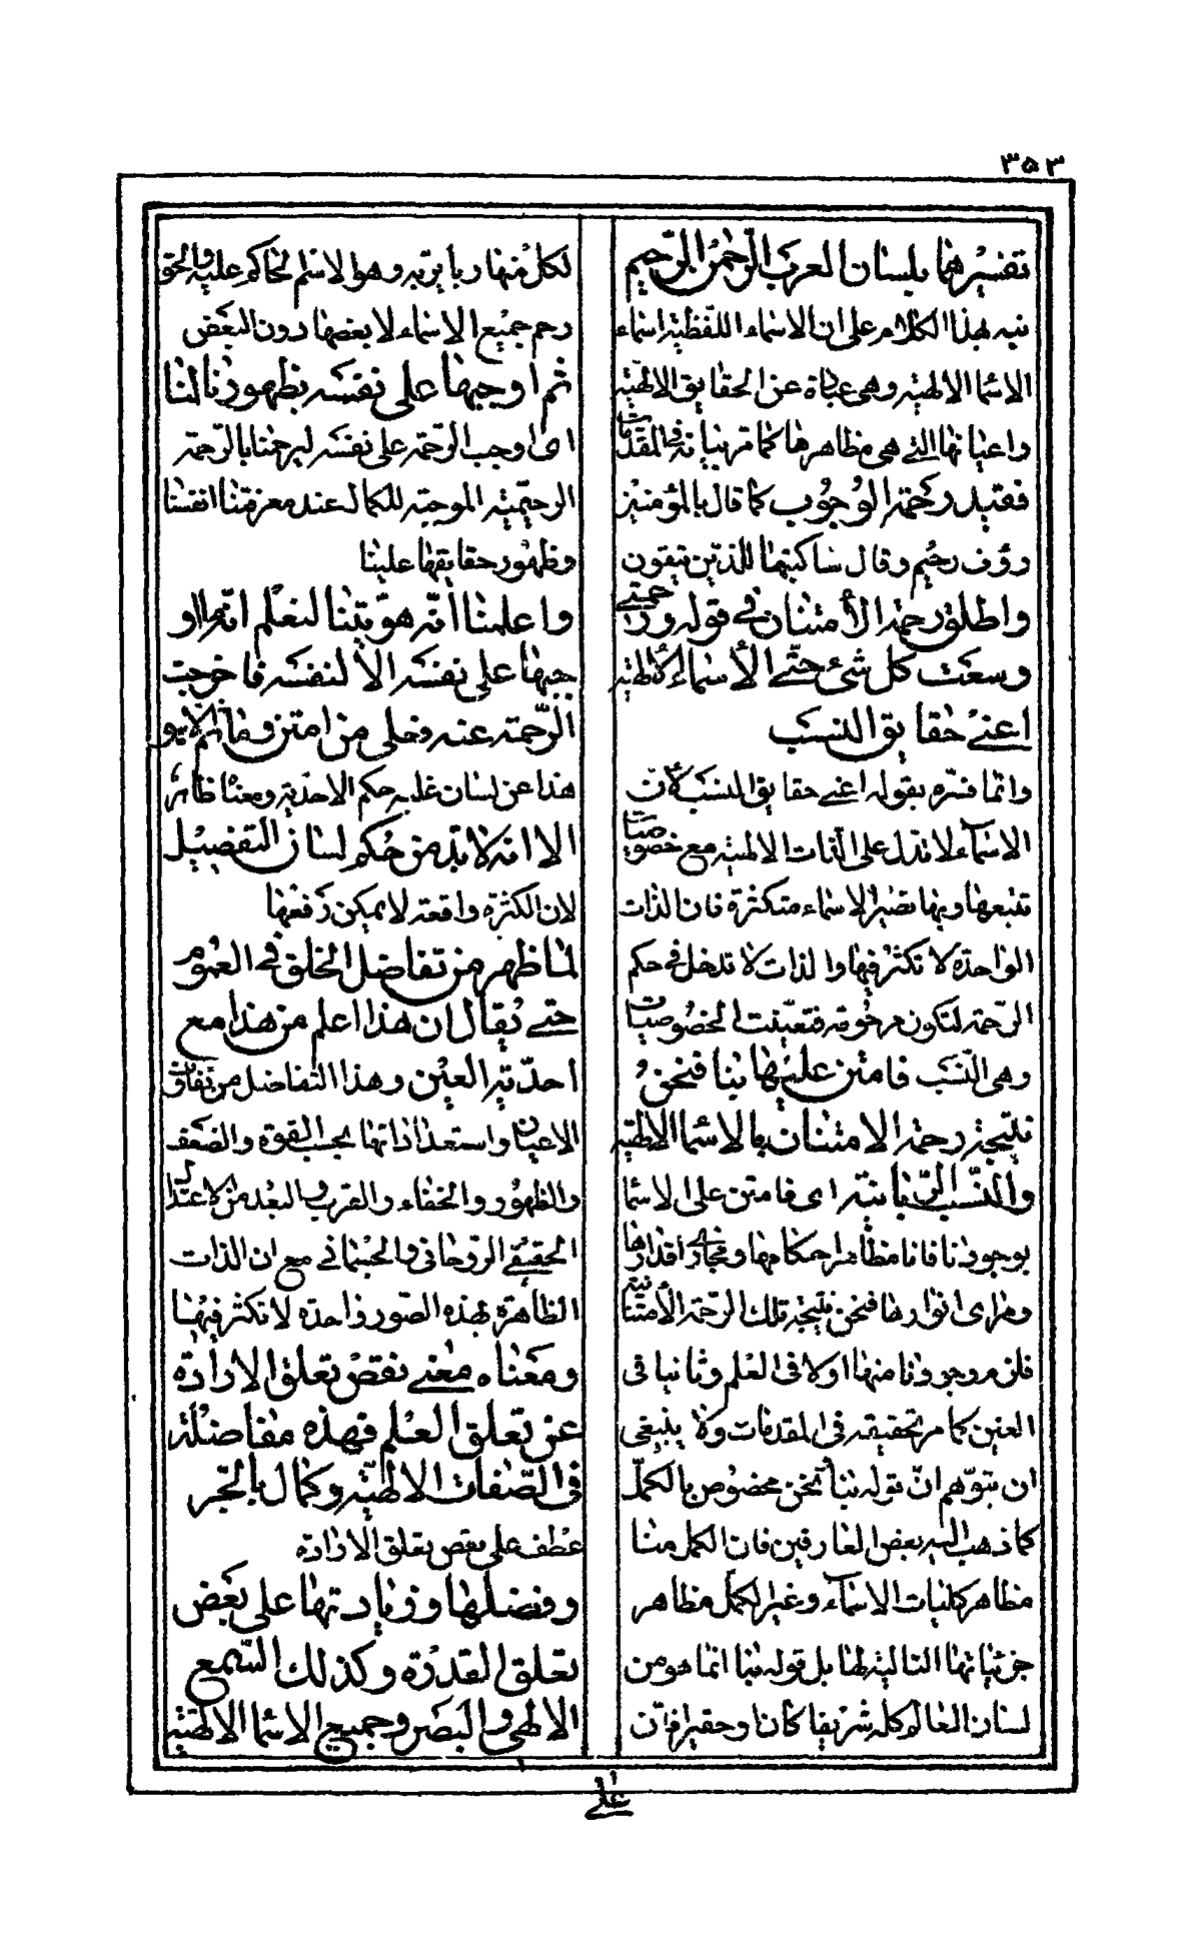 ٣٥٣
تفسيرهما بلسان العرب الرّحمن الرّحيم
نبه بهذا الكلام على ان الاسماء اللّفظية اسماء
الاسما الالهية وهى عبارة عن الحقايق الالهيّة
واعيانها التى هى مظاهرها كما مر بيانه فى المقدمات
فقيد رحمة الوجوب كما قال بالمؤمنين
رؤف رحيم وقال ساكتبها للذين يتقون
واطلق رحمة الأمتنان فى قوله ورحمتى
وسعت كل شئ حتّى الأسماء الألهية
اعنى حقايق النسب
وانما فسره بقوله اعنى حقايق النسب لأن
الاسماء لا تدل على الذات الالهية مع خصوصيات
تتبعها وبها تصير الاسماء متكثرة فان الذات
الواحدة لا تكثر فيها والذات لا تدخل فى حكم
الرّحمة لتكون مرحومة فتعيّنت الخصوصيات
وهى النّسب فامتن عليها بنا فنحن
نتيجة رحمة الامتنان بالاسما الالهية
والنّسب الرّبانية اى فامتن على الاسما
بوجودنا فانا مظاهر احكامها ومجارى اقدارها
ومرائى انوارها فنحن نتيجة تلك الرّحمة الأمتنانية
فلزم وجودنا منها اولا فى العلم وثانيا فى
العين كما مر تحقيقه فى المقدمات ولا ينبغى
ان يتوهم انّ قوله بنا نحن مخصوص بالكمّل
كما ذهب اليه بعض العارفين فان الكمل منا
مظاهر كليات الاسماء وغير الكمل مظاهر
جزئياتها التالية لها بل قوله بنا انما هو من
لسان العالم كله شريفا كان وحقيرا فان
لكل منها ربا يربه وهو الاسم الحاكم عليه والحق
رحم جميع الاسماء لا بعضها دون البعض
ثم اوجبها على نفسه بظهورنا لنا
اى اوجب الرّحمة على نفسه ليرحمنا بالرّحمة
الرحيمية الموجبة للكمال عند معرفتنا انفسنا
وظهور حقايقها علينا
واعلمنا انّه هويّتنا لنعلم انّه ما او
جبها على نفسه الا لنفسه فما خرجت
الرّحمة عنه فعلى من امتن وما ثم الا هو
هذا عن لسان غلبه حكم الاحدية ومعناه ظاهر
الا انه لا بد من حكم لسان التفصيل
لان الكثرة واقعة لا يمكن رفعها
لما ظهر من تفاضل الخلق فى العلوم
حتى يقال ان هذا اعلم من هذا مع
احديّة العين وهذا التفاضل من تفاوت
الاعيان واستعداداتها بحسب القوة والضعف
والظهور والخفاء والقرب والبعد من الاعتدال
الحقيقى الروحانى والجسمانى مع ان الذات
الظاهرة بهذه الصور واحدة لا تكثر فيها
ومعناه معنى نقص تعلق الارادة
عن تعلق العلم فهذه مفاضلة
فى الصّفات الالهيّة وكمال بالجر
عطف على نقص تعلق الارادة
وفضلها وزيادتها على بعض
تعلق القدرة وكذلك السّمع
الالهى والبصر وجميع الاسما الالهية
على